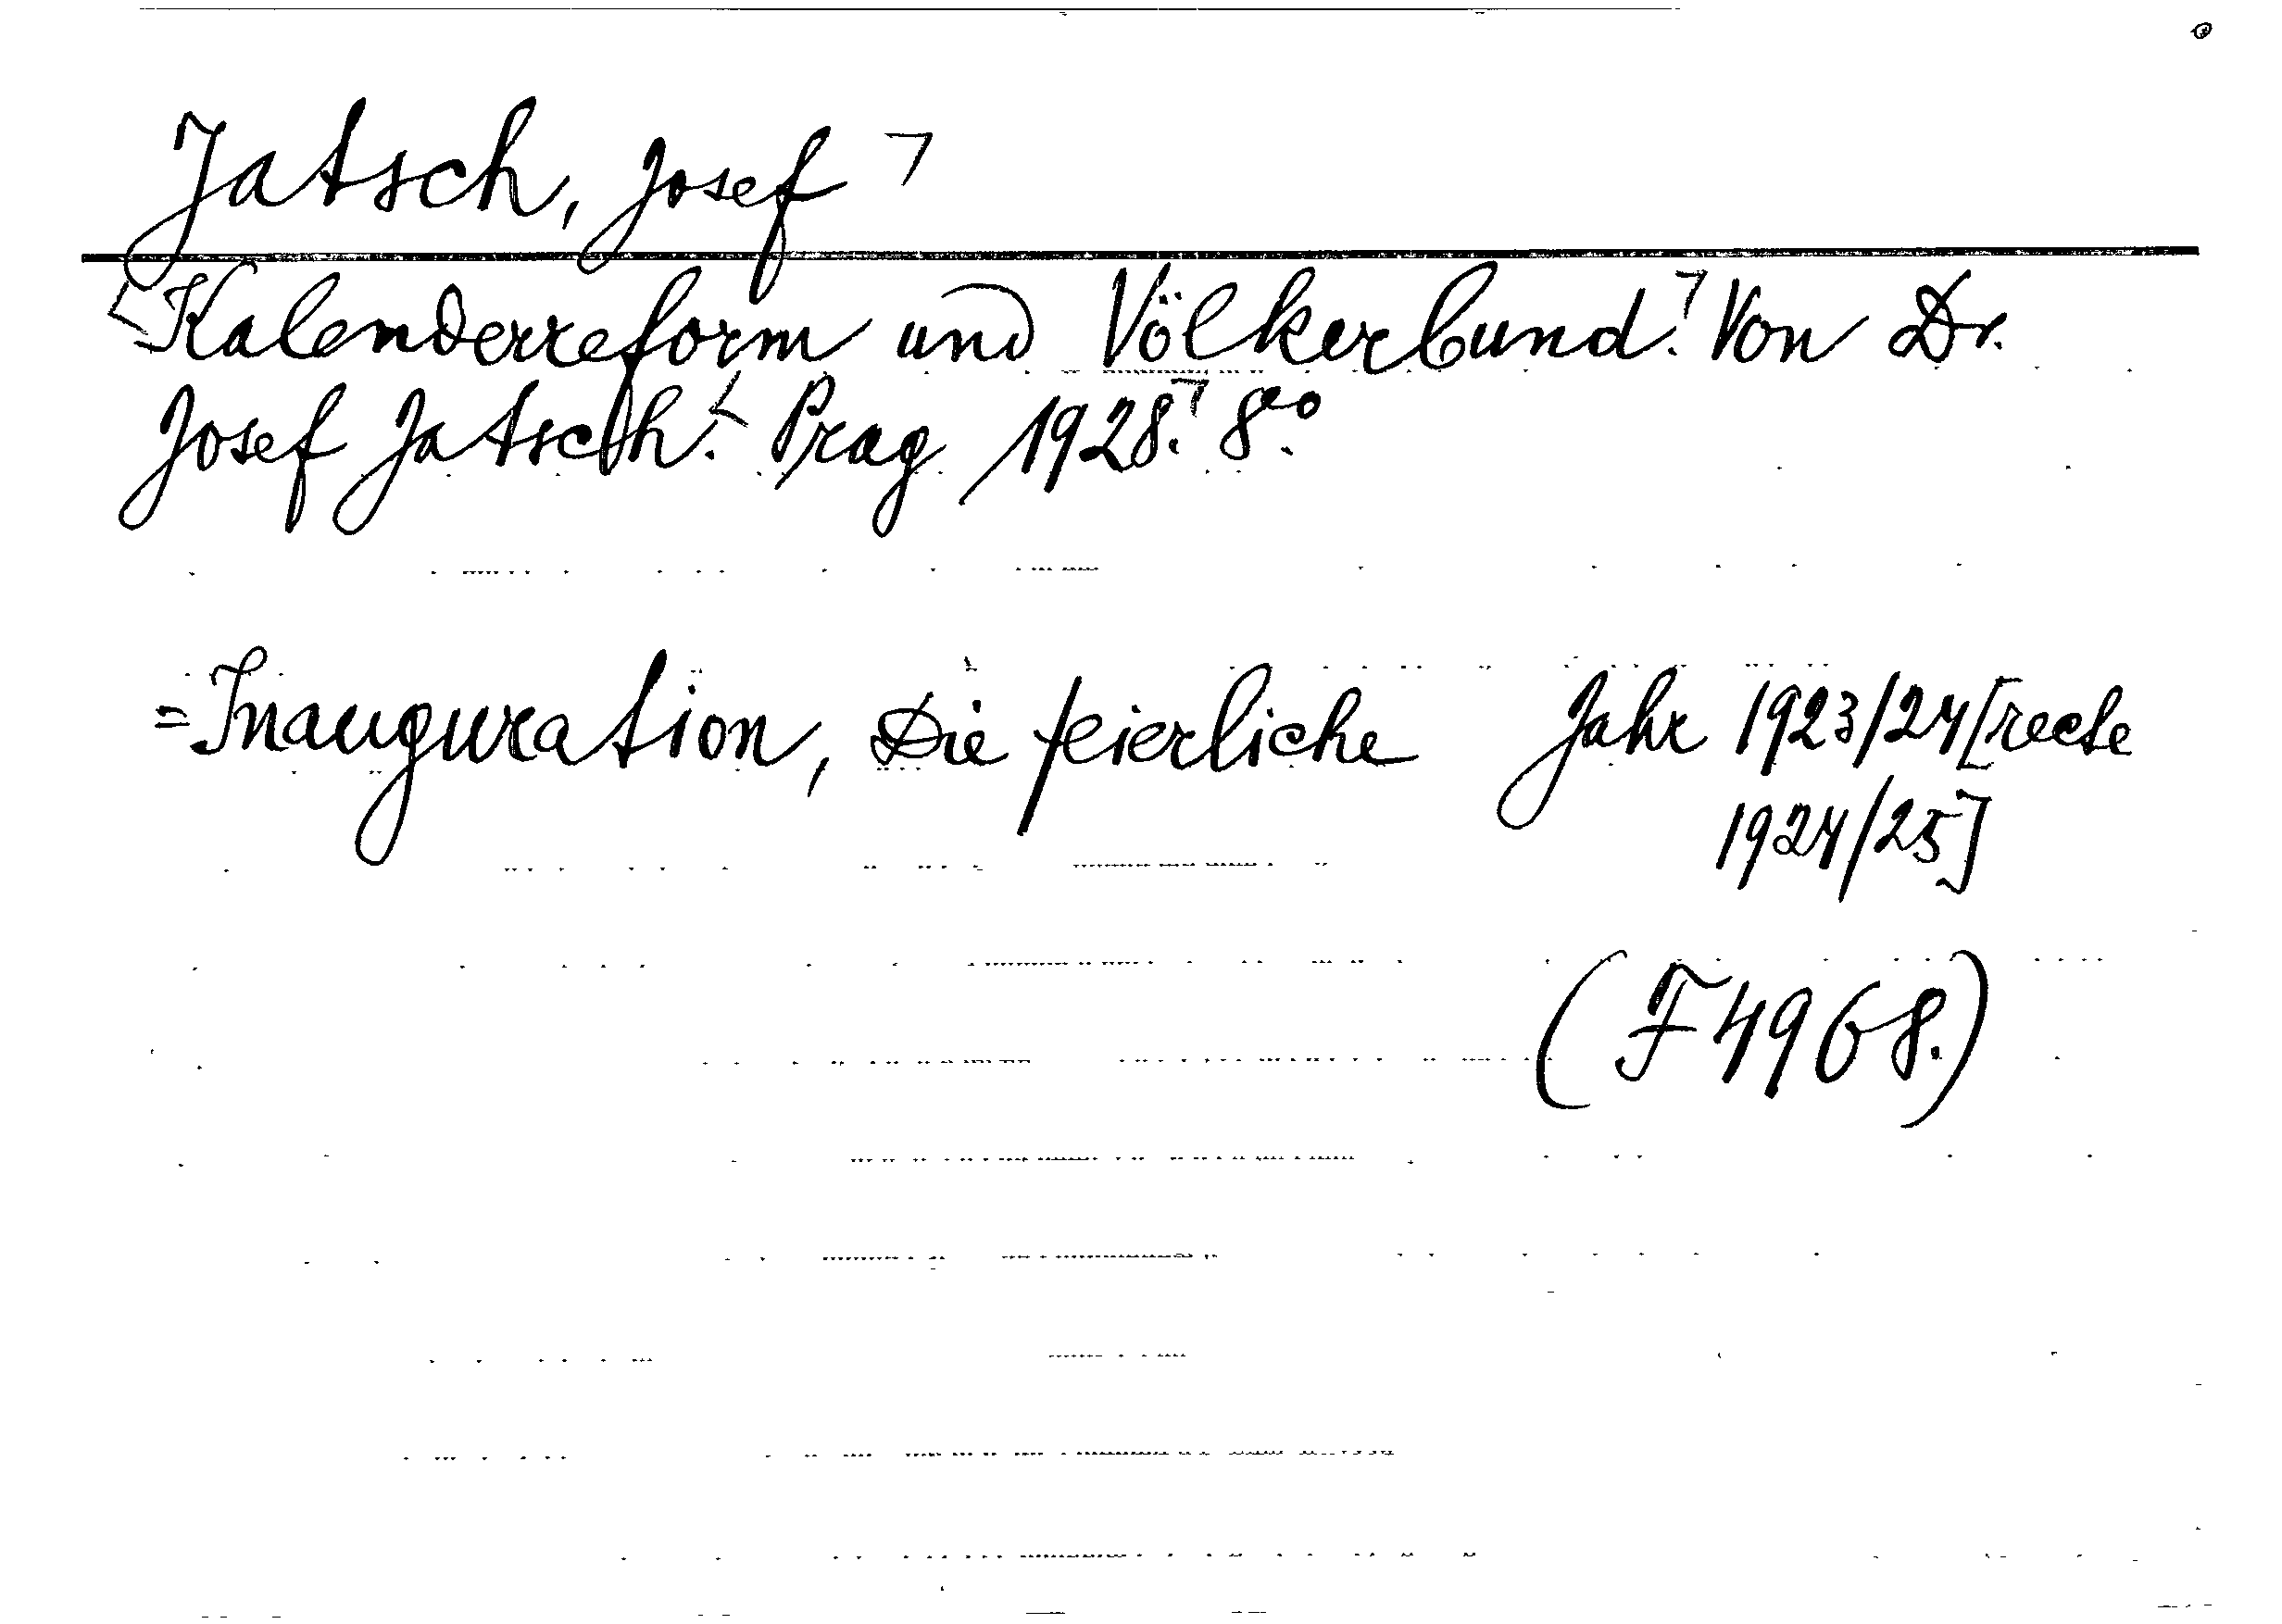 Jatsch, Josef ┐
<Kalenderreform und Völkerbund.┐ Von Dr.
Josef Jatsch.< Prag 1928.┐ 8°°.
=Inauguration, Die feierliche Jahr 1923/24[recte
1924/25]
(F 4968.)